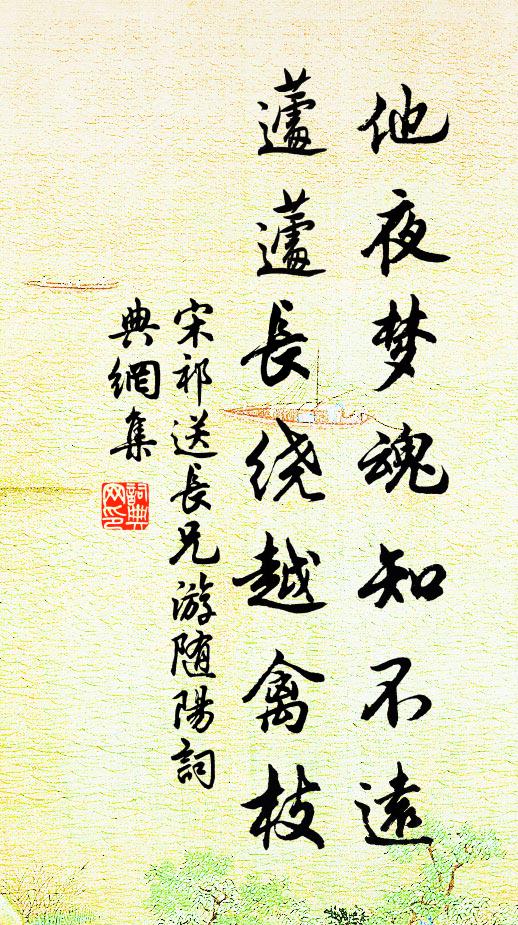 他夜梦魂知不遠
蘧蘧長绕越禽枝
宋祁送長兄游随陽詞
典網集
詞典
网印